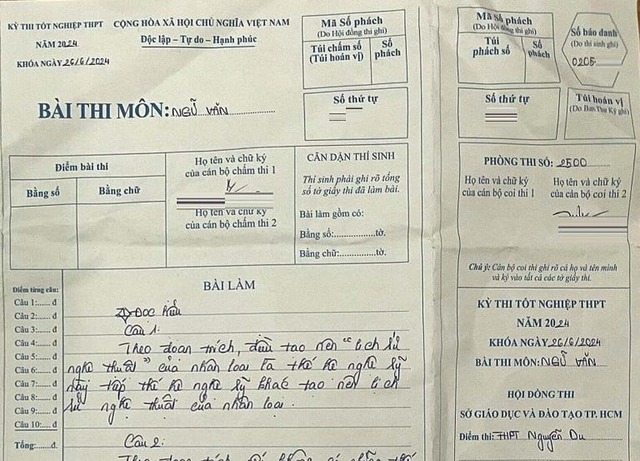 KỲ THI TỐT NGHIỆP THPT
NĂM 2024
KHÓA NGÀY 26/6/2024
CỘNG HÒA XÃ HỘI CHỦ NGHĨA VIỆT NAM
Độc lập - Tự do - Hạnh phúc
BÀI THI MÔN: NGỮ VĂN
Mã Số phách
(Do Hội đồng thi ghi)
Túi chấm số
(Túi hoán vị)
Số
phách
Số thứ tự
Điểm bài thi
Bằng số
Bằng chữ
Họ tên và chữ ký
của cán bộ chấm thi 1
Họ tên và chữ ký
của cán bộ chấm thi 2
CĂN DẶN THÍ SINH
Thí sinh phải ghi rõ tổng
số tờ giấy thi đã làm bài.
Bài làm gồm có:
Bằng số:..............tờ.
Bằng chữ:............tờ.
Điểm từng câu:
Câu 1:...... đ
Câu 2:...... đ
Câu 3:...... đ
Câu 4:...... đ
Câu 5:...... đ
Câu 6:...... đ
Câu 7:...... đ
Câu 8:...... đ
Câu 9:...... đ
Câu 10:..... đ
Tổng:......đ
BÀI LÀM
I) Đọc hiểu
Câu 1:
Theo đoạn trích, điều tạo nên "lịch sử
nghệ thuật" của nhân loại là thế hệ nghệ sỹ
này tiếp thế hệ nghệ sỹ khác tạo nên lịch
sử nghệ thuật của nhân loại.
Câu 2:
Theo đoạn trích,
Mã Số phách
(Do Hội đồng thi ghi)
Túi
phách số
Số
phách
Số thứ tự
Số báo danh
(Do thí sinh ghi)
0205
Túi hoán vị
(Do Ban Thư Ký ghi)
PHÒNG THI SỐ: 2500
Họ tên và chữ ký
của cán bộ coi thi 1
Họ tên và chữ ký
của cán bộ coi thi 2
Chú ý: Cán bộ coi thi ghi rõ cả họ và tên mình
và ký vào tất cả các tờ giấy thi.
KỲ THI TỐT NGHIỆP THPT
NĂM 2024
KHÓA NGÀY 26/6/2024
BÀI THI MÔN: NGỮ VĂN
HỘI ĐỒNG THI
SỞ GIÁO DỤC VÀ ĐÀO TẠO TP. HCM
Điểm thi: THPT Nguyễn Du